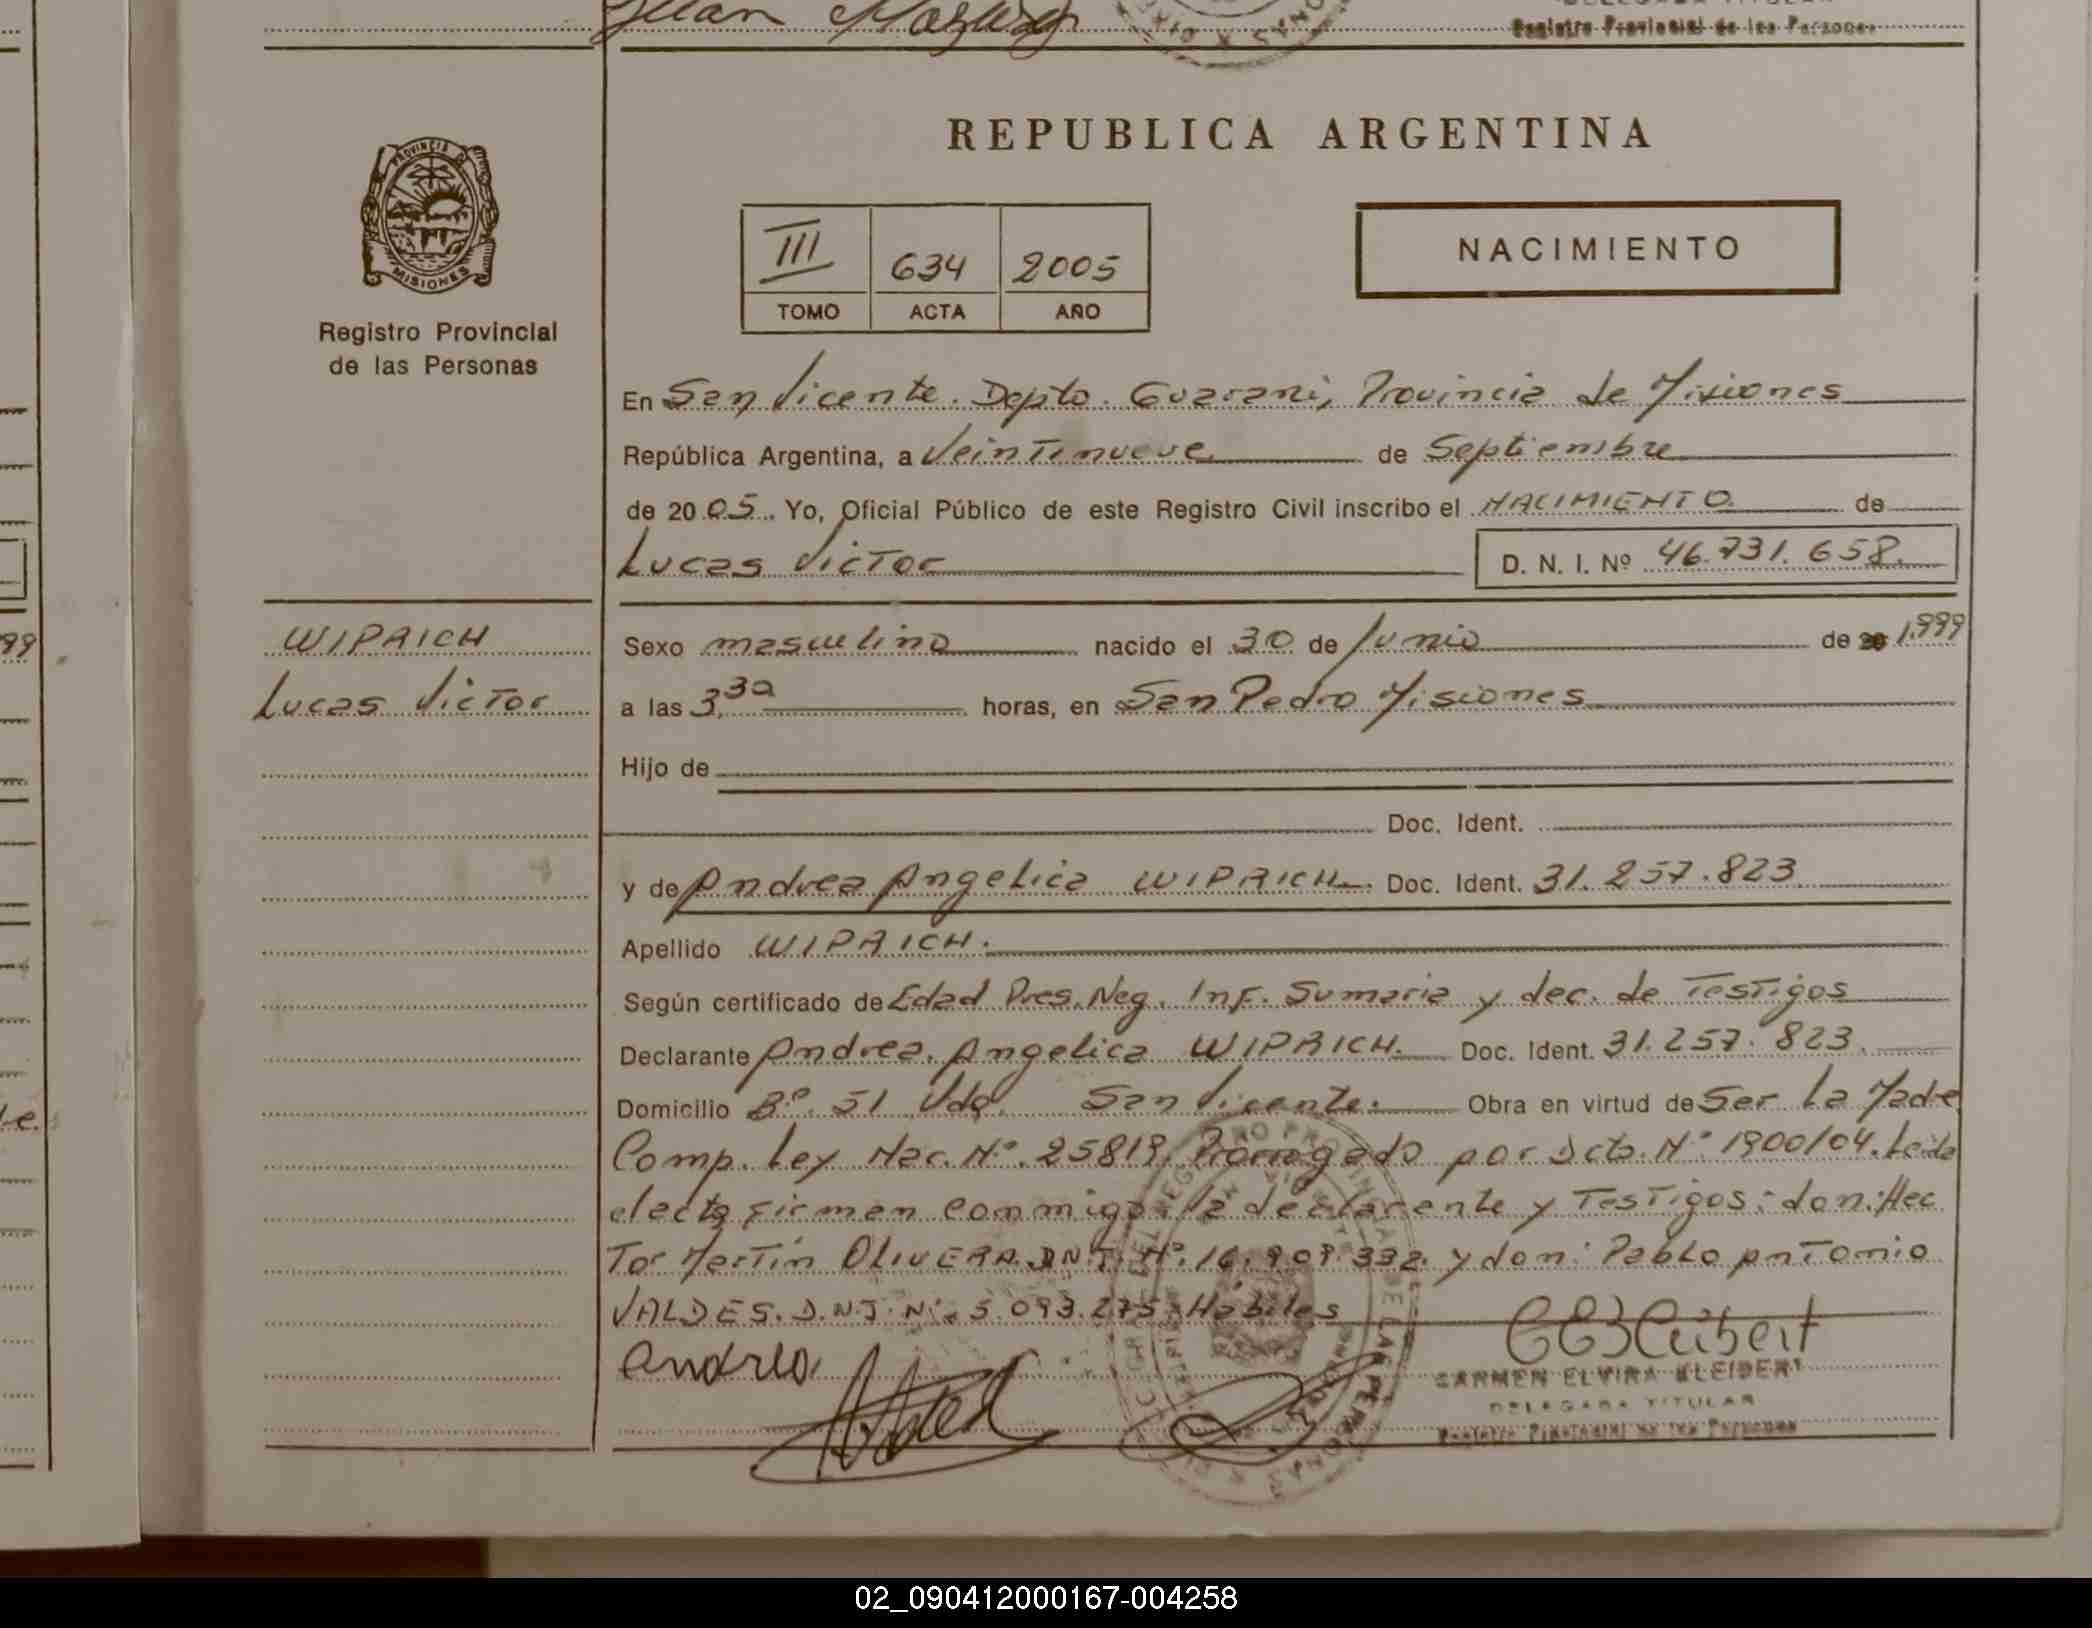 Juan
Registro Provincial de las Personas
REPUBLICA ARGENTINA
PROVINCIA D
MISIONES
Registro Provincial
de las Personas
III 634 2005
TOMO ACTA AÑO
NACIMIENTO
En San Vicente. Depto. Guarani, Provincia de Misiones
República Argentina, a Veintinueve de Septiembre
de 2005. Yo, Oficial Público de este Registro Civil inscribo el NACIMIENTO de
Lucas Victor D. N. I. Nº 46.731.658.
WIPRICH
Lucas Victor
Sexo masculino nacido el 30 de Junio de 20 1.999
a las 3,30 horas, en San Pedro Misiones
Hijo de
Doc. Ident.
y de Andrea Angelica WIPRICH. Doc. Ident. 31.257.823
Apellido WIPRICH.
Según certificado de Edad Pres. Neg. Inf. Sumaria y dec. de Testigos
Declarante Andrea Angelica WIPRICH. Doc. Ident. 31.257.823.
Domicilio Bº. 51 Vdas. San Vicente. Obra en virtud de Ser La Madre
Comp. Ley Nac. Nº. 25819. Prorrogado por Dcto. Nº 1900/04. Leida
el acta firman conmigo la declarante y Testigos: don: Hec
Tor Martin OLIVERA. D.N.I. Nº. 16.909.332. y don: Pablo Antonio
VALDES. D.N.I. Nº. 5.093.275. Hábiles
Andrea
CARMEN ELVIRA KLEIBERT
DELEGADA TITULAR
Registro Provincial de las Personas
02_090412000167-004258